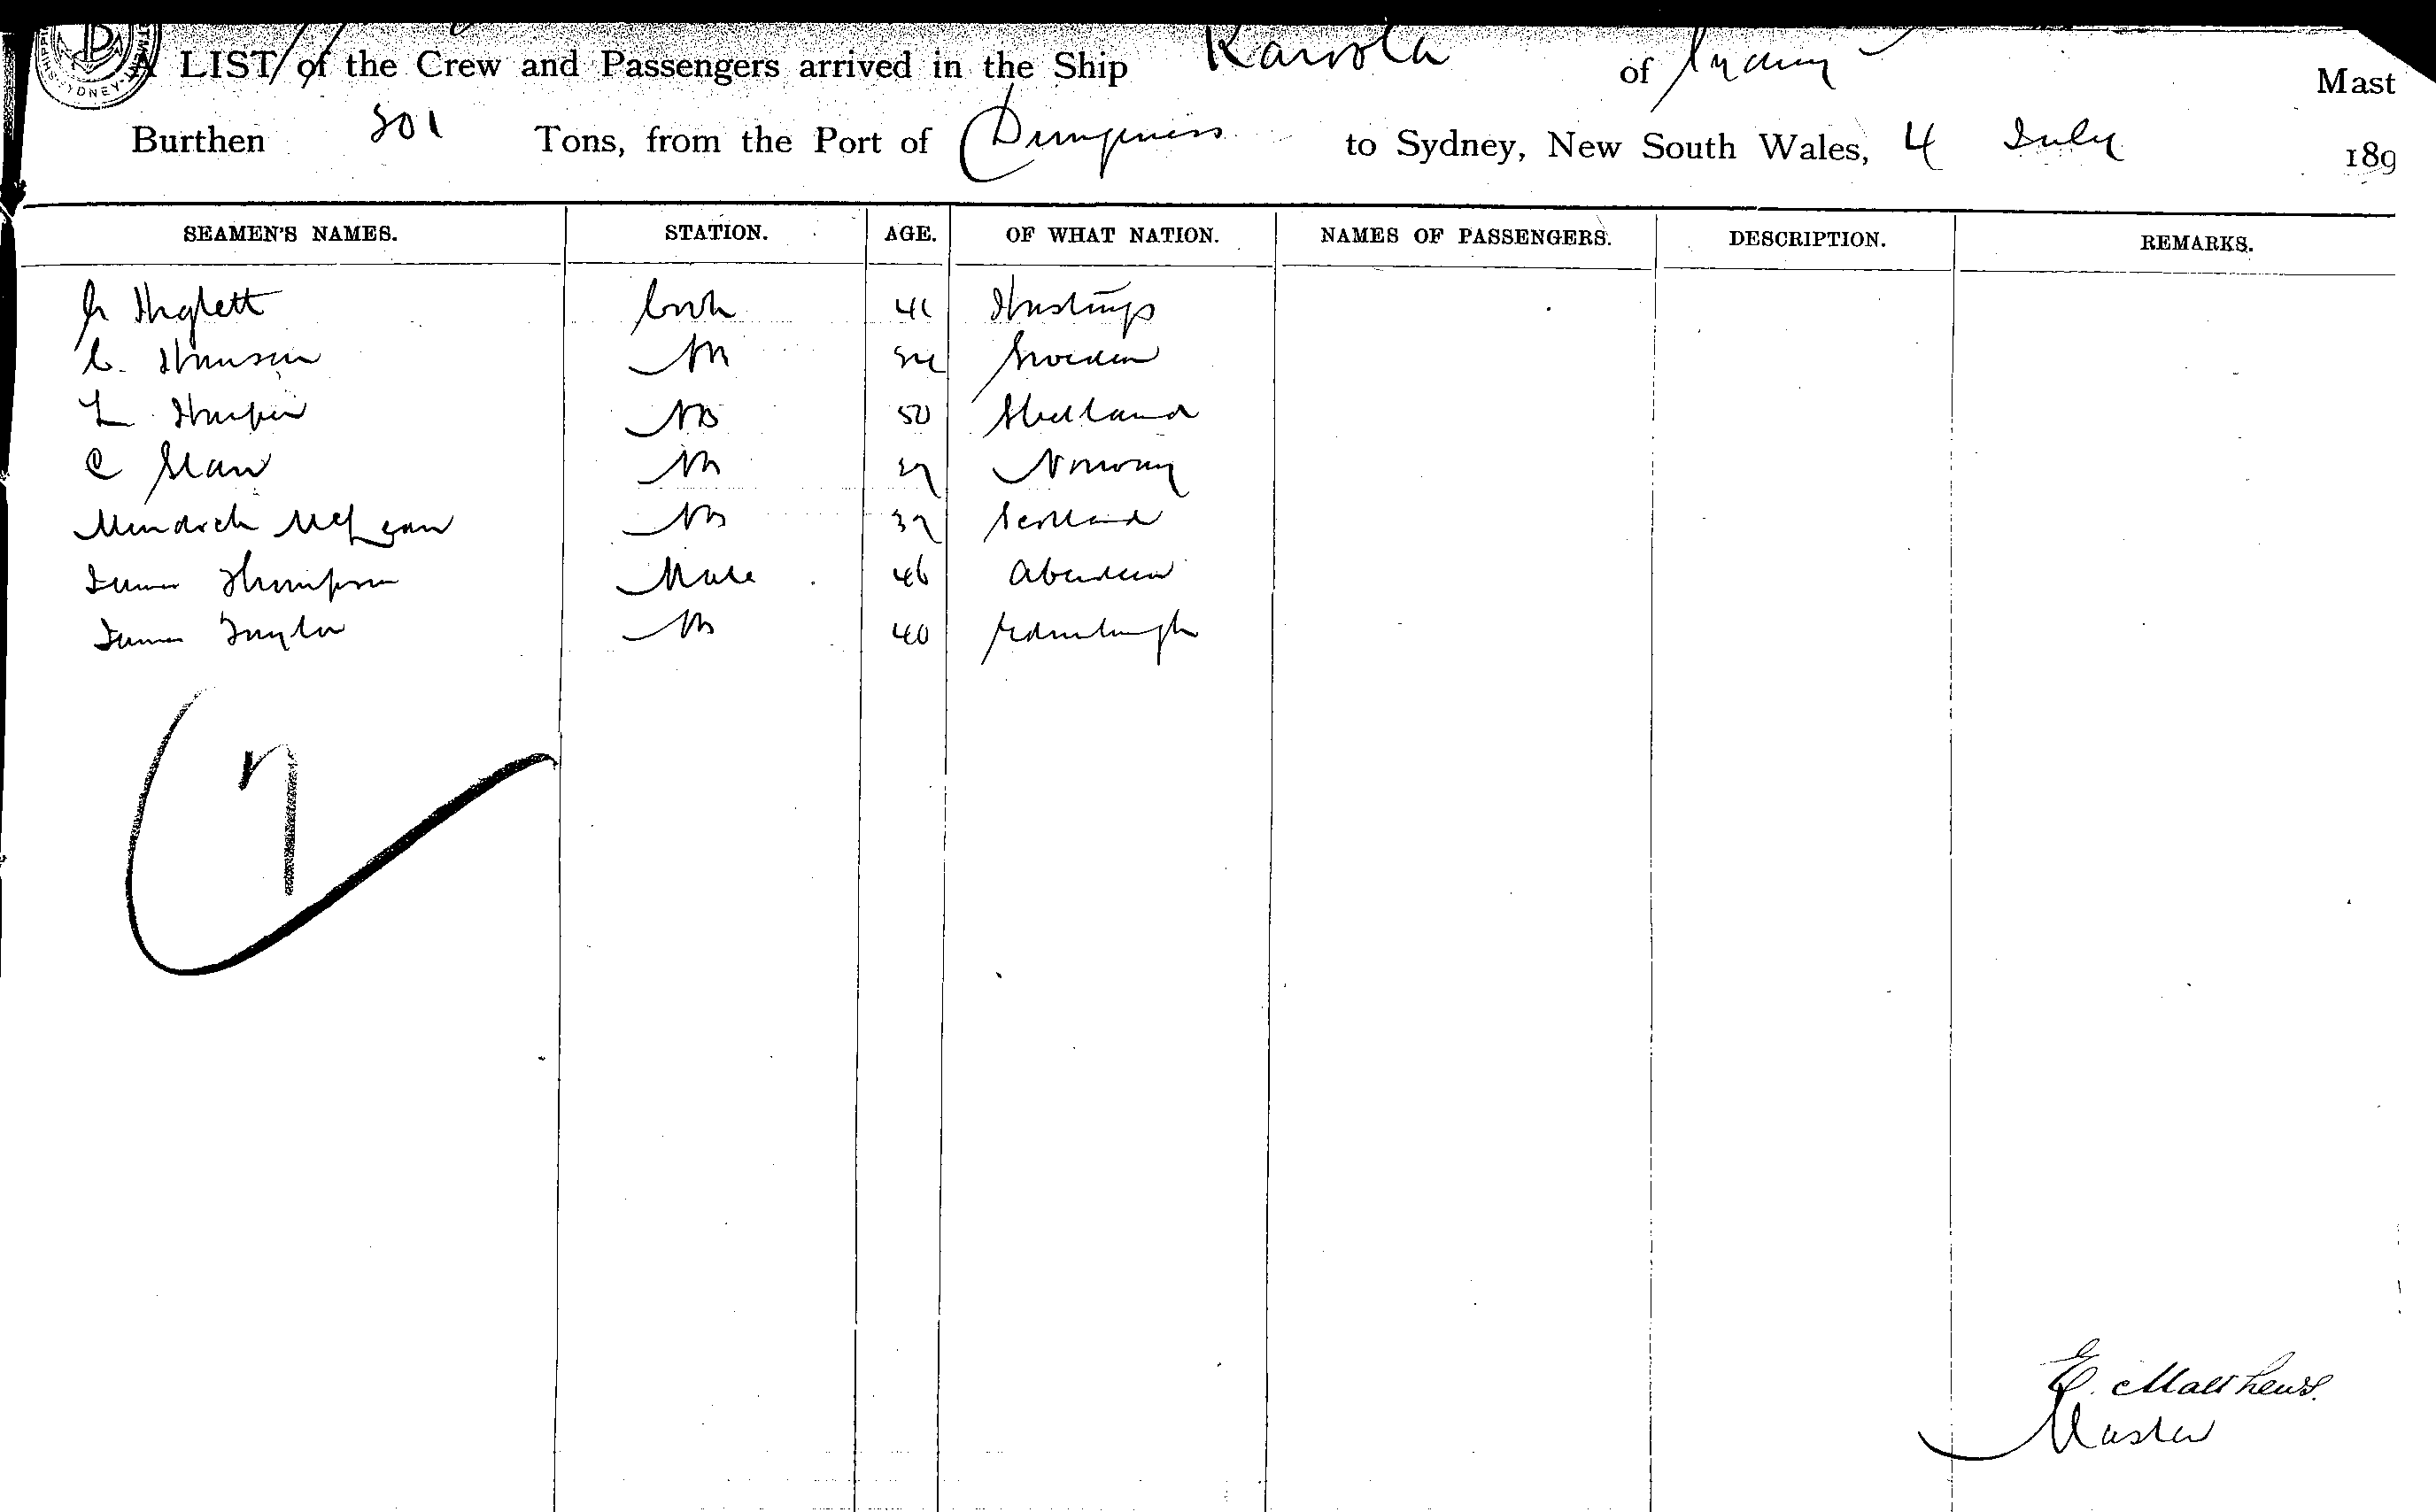 A LIST of the Crew and Passengers arrived in the Ship Karoola of Sydney Mast
Burthen 801 Tons, from the Port of Dungeness to Sydney, New South Wales, 4 July 189
SEAMEN'S NAMES. STATION. AGE. OF WHAT NATION. NAMES OF PASSENGERS. DESCRIPTION. REMARKS.
Cook 41 Hastings
C. Hansen AB Sweden
L Harper AB 50 Shetland
C AB Norway
McLean AB 37 Scotland
James Thompson Mate 46 Aberdeen
James Taylor AB 40 Edinburgh
7
E. Matthews.
Master